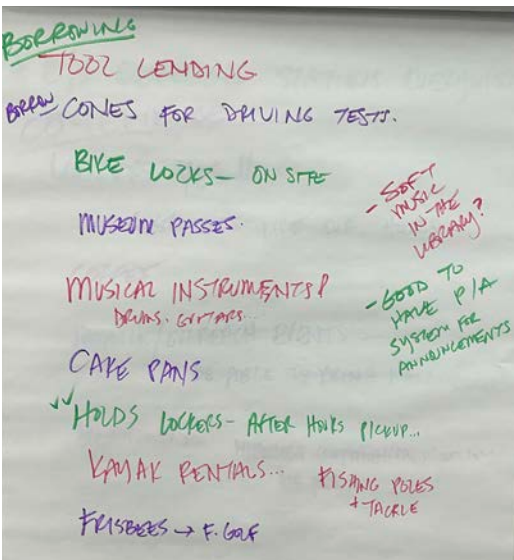 BORROWING
TOOL LENDING
BORROW CONES FOR DRIVING TESTS.
BIKE LOCKS – ON SITE
MUSEUM PASSES.
MUSICAL INSTRUMENTS!
DRUMS, GUITARS...
CAKE PANS
✓✓ HOLDS LOCKERS – AFTER HOURS PICKUP...
KAYAK RENTALS...
FISHING POLES
+ TACKLE
FRISBEES → F. GOLF
– SOFT
MUSIC
IN THE
LIBRARY?
– GOOD TO
HAVE P/A
SYSTEM FOR
ANNOUNCEMENTS